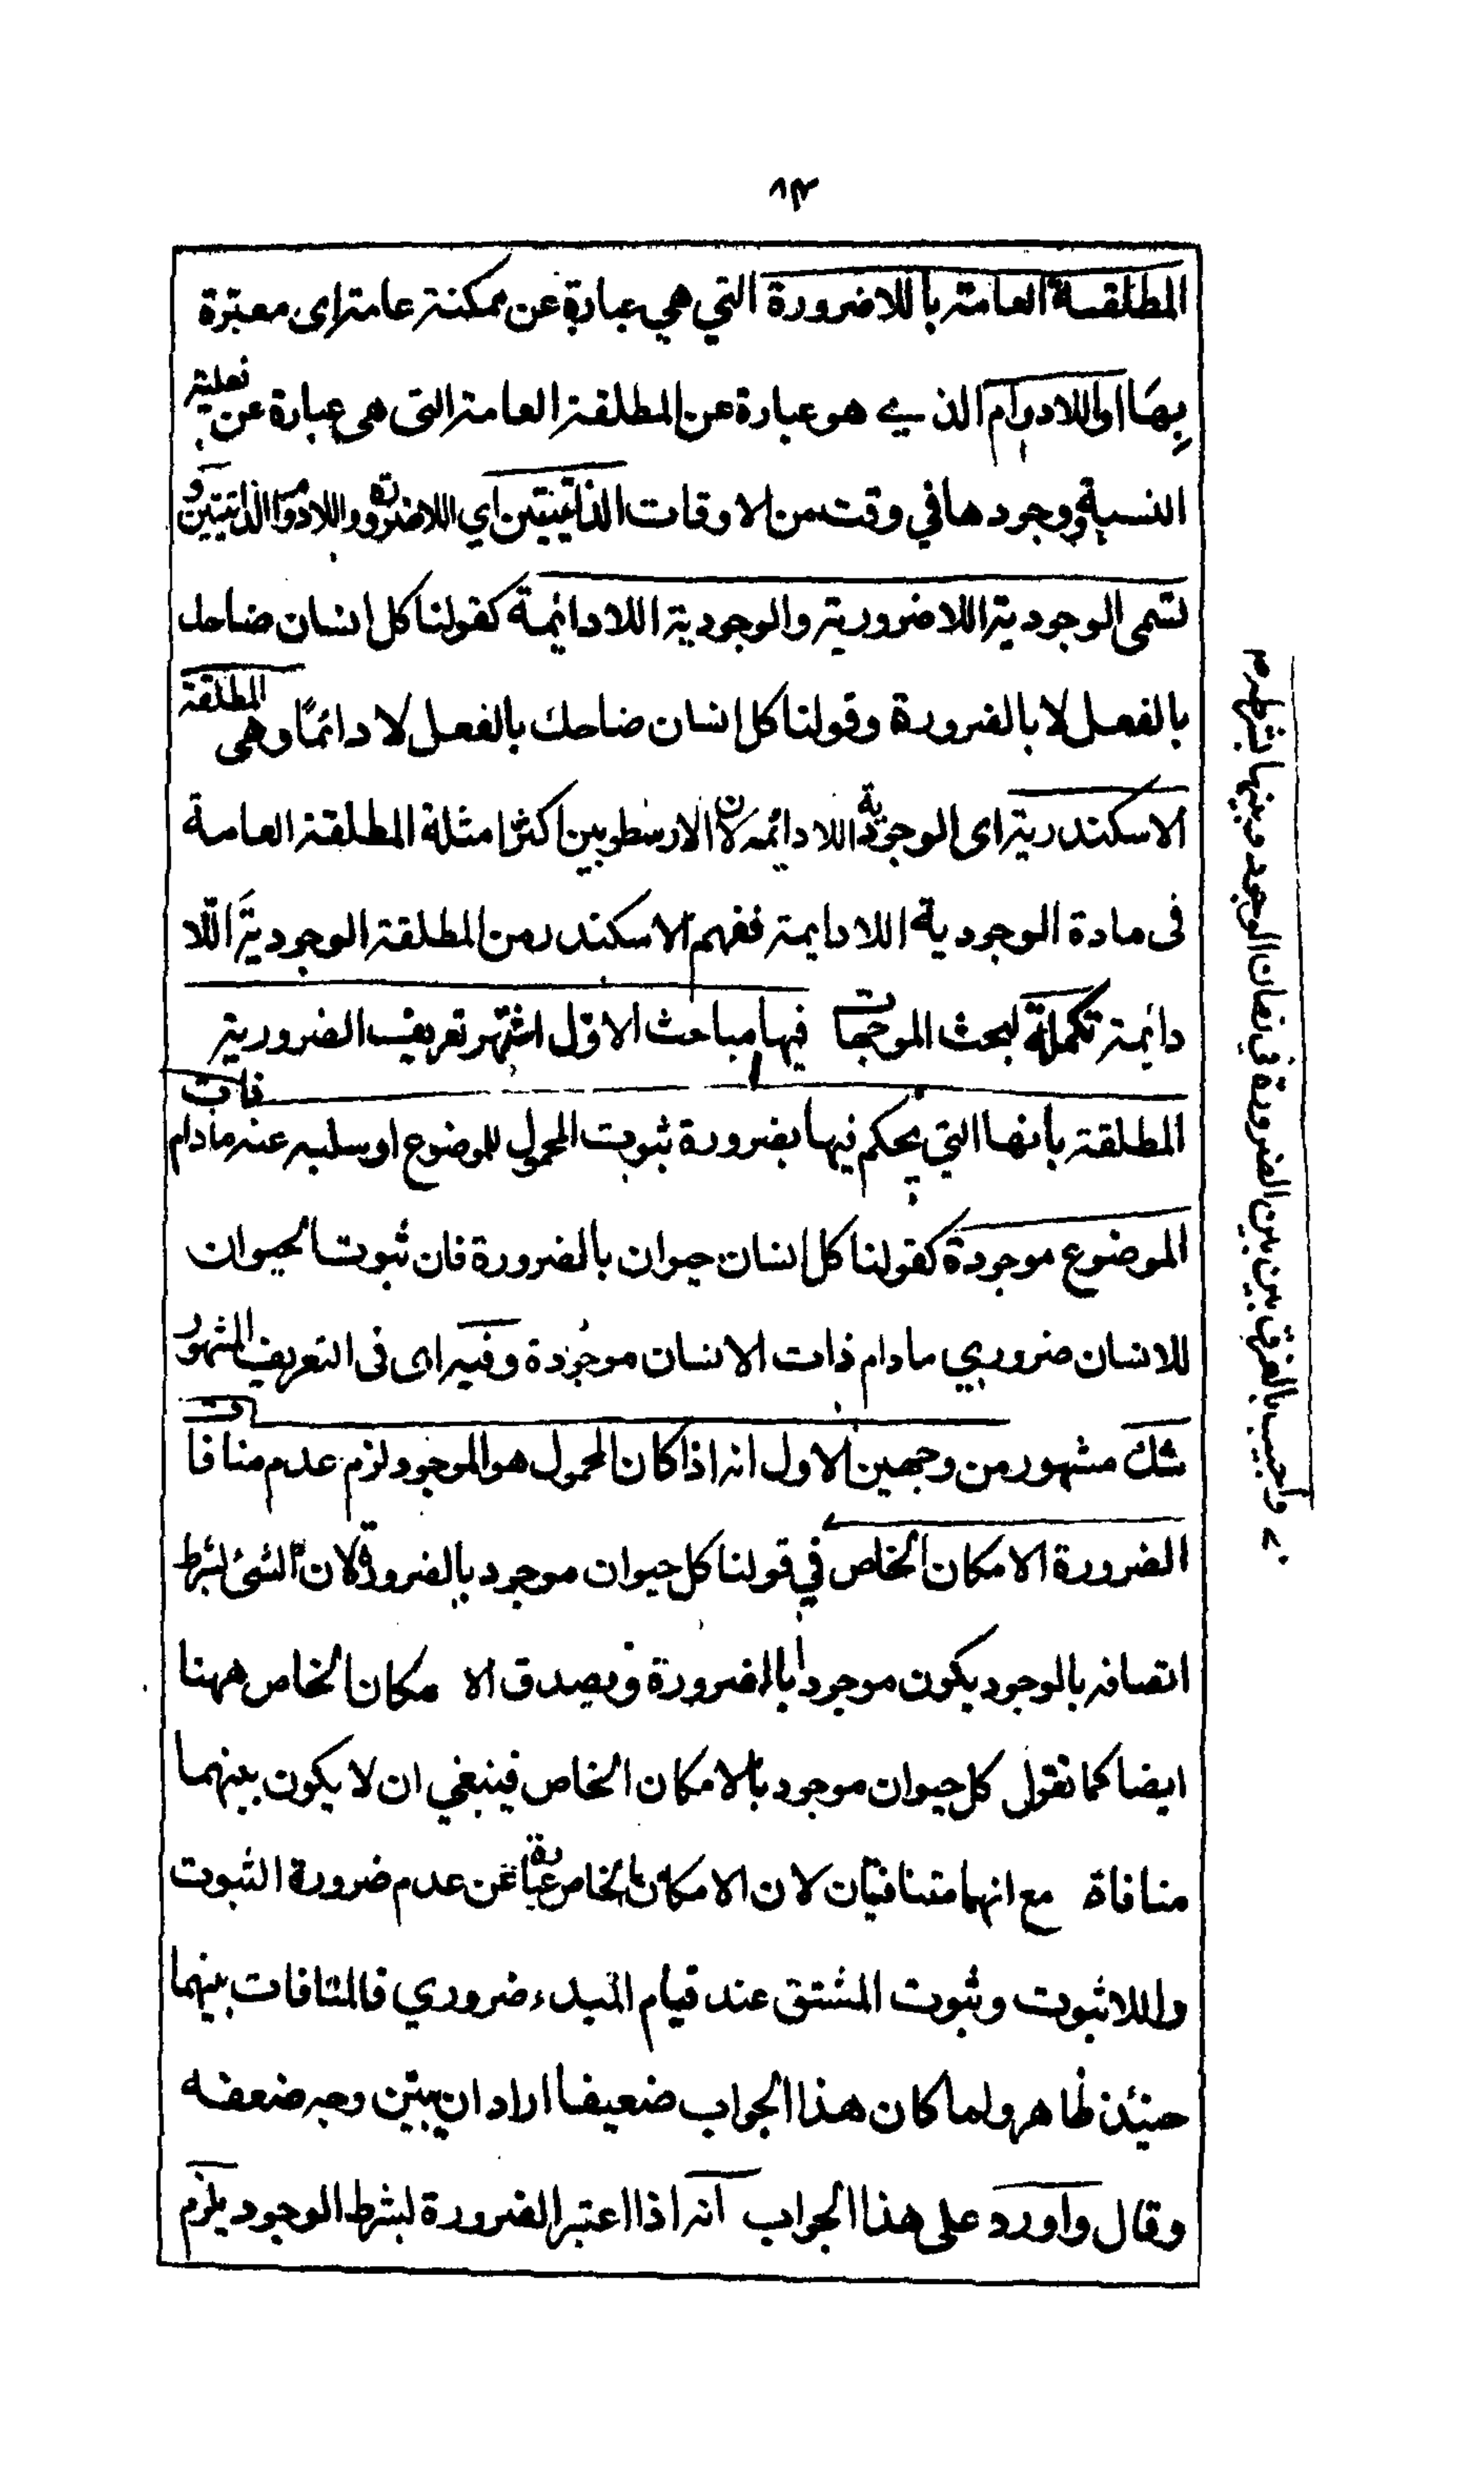 ٨٣
المطلقة العامة باللاضرورة التي هي عبارة عن ممكنة عامة اى معتبرة
بها او اللادوام الذي هو عبارة عن المطلقة العامة التى هى عبارة عن فعلية
النسبة ووجودها في وقت من الاوقات الذاتيتين اي اللاضرورة واللادوام الذاتيتين و
تسمى الوجودية اللاضرورية والوجودية اللادائمة كقولنا كل انسان ضاحك
بالفعل لا بالضرورة وقولنا كل انسان ضاحك بالفعل لا دائمًا وهى المطلقة
الاسكندرية اى الوجودية اللادائمه لان الارسطوبين اكثر امثلة المطلقة العامة
فى مادة الوجودية اللادايمة ففهم الاسكندر من المطلقة الوجودية اللا
دائمة تكملة لبحث الموجهات فيها مباحث الاوّل اشتهر تعريف الضرورية
المطلقة بانها التي يحكم فيها بضرورة ثبوت المحمول للموضوع او سلبه عنه مادام ذات
الموضوع موجودة كقولنا كل انسان حيوان بالضرورة فان ثبوت الحيوان
للانسان ضروري مادام ذات الانسان موجودة وفيه اى فى التعريف المشهور
شك مشهور من وجهين الاول انه اذا كان المحمول هو الموجود لزم عدم منافات
الضرورة الامكان الخاص في قولنا كل حيوان موجود بالضرورة لان الشئ بشرط
اتصافه بالوجود يكون موجودا بالضرورة ويصدق الا مكان الخاص ههنا
ايضا كما تقول كل حيوان موجود بالامكان الخاص فينبغي ان لا يكون بينهما
منافاة مع انهما متنافيان لان الامكان الخاص عبارة عن عدم ضرورة الثبوت
واللاثبوت وثبوت المشتق عند قيام المبدء ضروري فالمنافات بينهما
حينئذ ظاهر ولما كان هذا الجواب ضعيفا اراد ان يبيّن وجه ضعفه
وقال واورد على هذا الجواب انه اذا اعتبر الضرورة بشرط الوجود يلزم
واجيب بالفرق بين الضرورة في زمان الوجود وبينها بشرطه